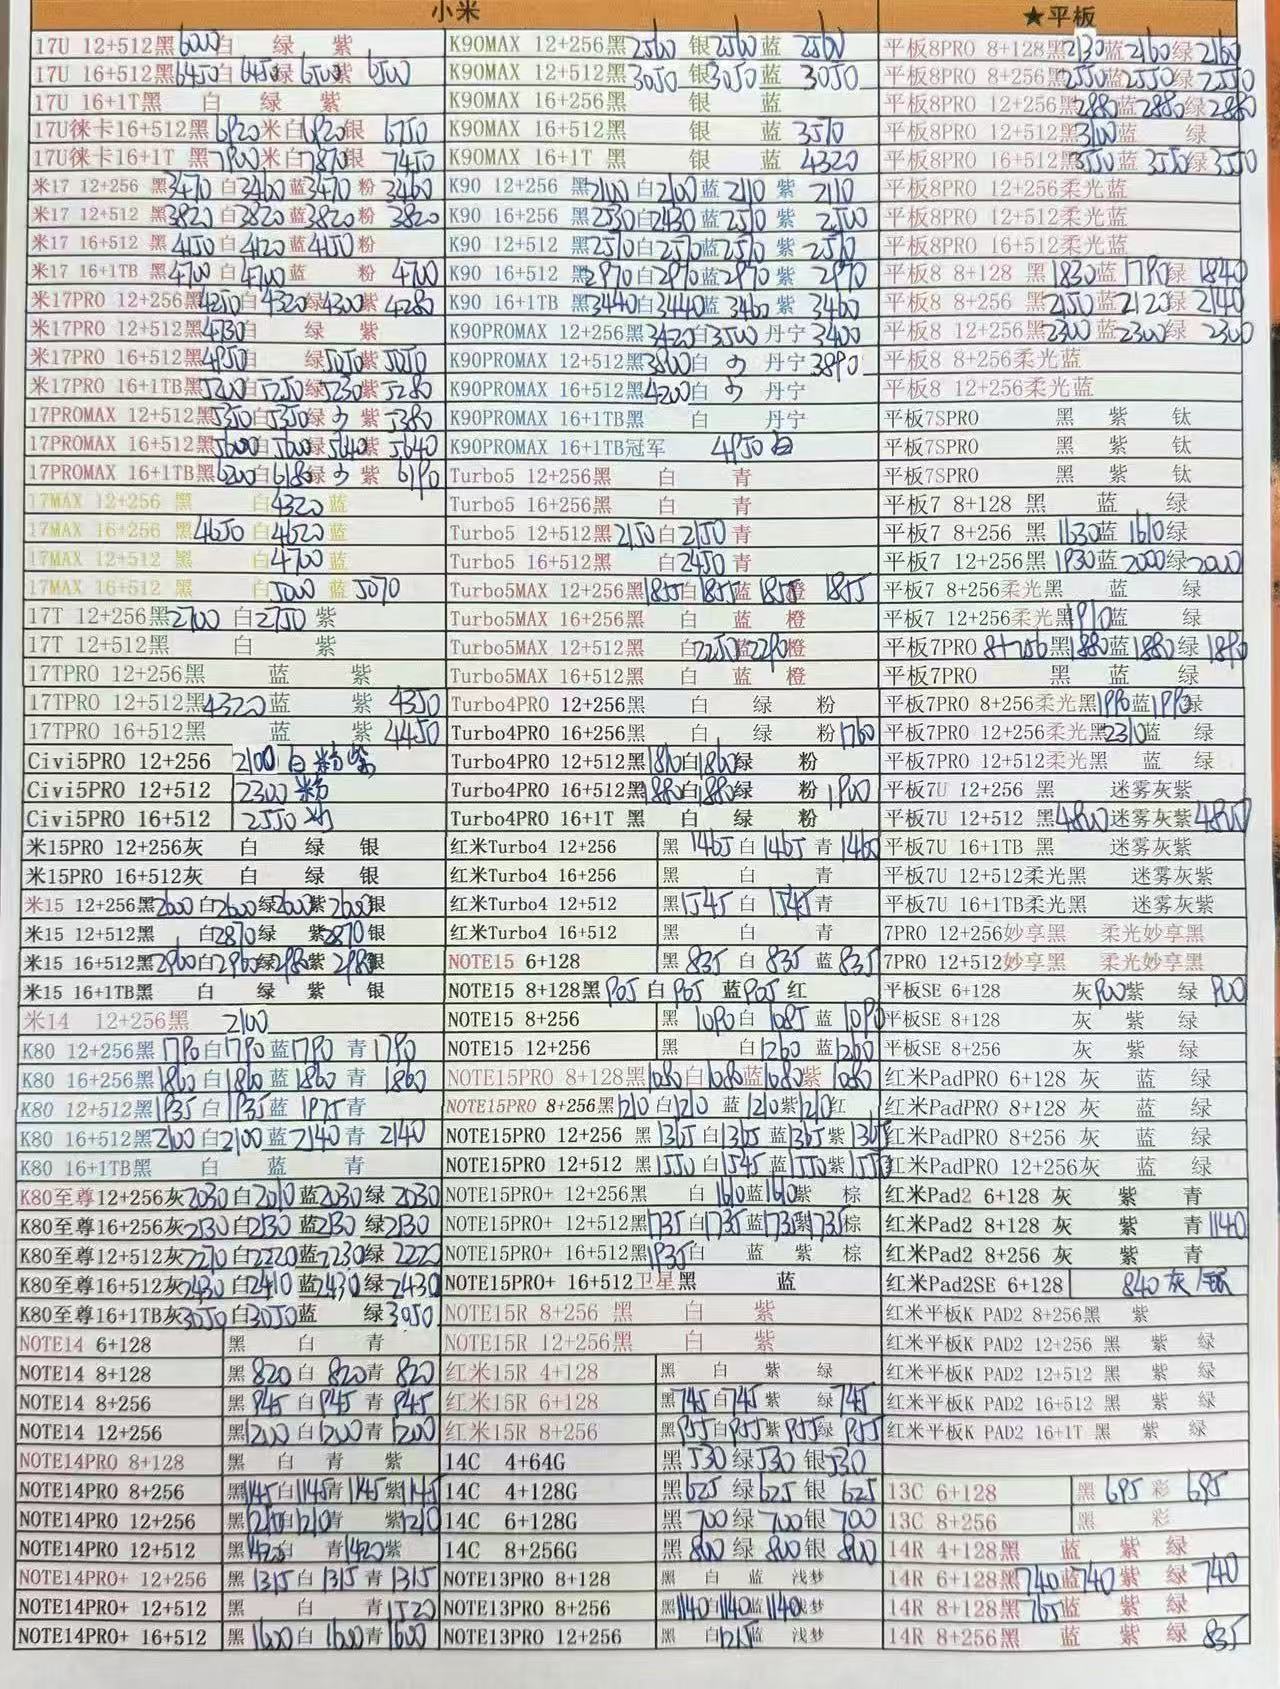 小米
★平板
17U 12+512黑6000白 绿 紫
17U 16+512黑6450白6450绿6500紫6500
17U 16+1T黑 白 绿 紫
17U徕卡16+512黑6920米白6920银6750
17U徕卡16+1T 黑7900米白7870银7450
米17 12+256 黑3470白3460蓝3470粉3460
米17 12+512 黑3820白3820蓝3820粉3820
米17 16+512 黑4150白4120蓝4150粉
米17 16+1TB 黑4700白4700蓝 粉4700
米17PRO 12+256黑4250白4320绿4300紫4280
米17PRO 12+512黑4730白 绿 紫
米17PRO 16+512黑4950白 绿5050紫5050
米17PRO 16+1TB黑5200白5250绿5230紫5280
17PROMAX 12+512黑5350白5350绿 紫5380
17PROMAX 16+512黑5600白5600绿5640紫5640
17PROMAX 16+1TB黑6200白6180绿 紫6190
17MAX 12+256 黑 白4320蓝
17MAX 16+256 黑4650白4620蓝
17MAX 12+512 黑 白4700蓝
17MAX 16+512 黑 白5000蓝5070
17T 12+256黑2700 白2750紫
17T 12+512黑 白 紫
17TPRO 12+256黑 蓝 紫
17TPRO 12+512黑4320蓝 紫4350
17TPRO 16+512黑 蓝 紫4450
Civi5PRO 12+256 2100 白 粉 紫
Civi5PRO 12+512 2300 粉
Civi5PRO 16+512 2550
米15PRO 12+256灰 白 绿 银
米15PRO 16+512灰 白 绿 银
米15 12+256黑2600白2600绿2600紫2600银
米15 12+512黑 白2870绿 紫2870银
米15 16+512黑2960白2960绿2980紫2980银
米15 16+1TB黑 白 绿 紫 银
米14 12+256黑 2100
K80 12+256黑1790白1790蓝1790青1790
K80 16+256黑1860白1860蓝1860青1860
K80 12+512黑1935白1935蓝1975青
K80 16+512黑2100白2100蓝2140青2140
K80 16+1TB黑 白 蓝 青
K80至尊12+256灰2030白2010蓝2030绿2030
K80至尊16+256灰2130白2130蓝2130绿2130
K80至尊12+512灰2210白2220蓝2230绿2220
K80至尊16+512灰2430白2410蓝2430绿2430
K80至尊16+1TB灰3050白3050蓝 绿3050
NOTE14 6+128 黑 白 青
NOTE14 8+128 黑820白820青820
NOTE14 8+256 黑945白945青945
NOTE14 12+256 黑1200白1200青1200
NOTE14PRO 8+128 黑 白 青 紫
NOTE14PRO 8+256 黑1145白1145青1145紫1145
NOTE14PRO 12+256 黑1210白1210青 紫1210
NOTE14PRO 12+512 黑1420白 青1420紫
NOTE14PRO+ 12+256 黑1315白1315青1315
NOTE14PRO+ 12+512 黑 白 青1520
NOTE14PRO+ 16+512 黑1600白1600青1600
K90MAX 12+256黑2560银2560蓝2560
K90MAX 12+512黑3050银3050蓝3050
K90MAX 16+256黑 银 蓝
K90MAX 16+512黑 银 蓝3510
K90MAX 16+1T 黑 银 蓝4320
K90 12+256 黑2100白2100蓝2110紫2110
K90 16+256 黑2530白2430蓝2510紫2500
K90 12+512 黑2510白2510蓝2510紫2510
K90 16+512 黑2970白2970蓝2970紫2970
K90 16+1TB 黑3440白3440蓝3460紫3460
K90PROMAX 12+256黑3420白3500丹宁3400
K90PROMAX 12+512黑3800白 丹宁3890
K90PROMAX 16+512黑4200白 丹宁
K90PROMAX 16+1TB黑 白 丹宁
K90PROMAX 16+1TB冠军 4950白
Turbo5 12+256黑 白 青
Turbo5 16+256黑 白 青
Turbo5 12+512黑2150白2150青
Turbo5 16+512黑 白2450青
Turbo5MAX 12+256黑1855白1855蓝1855橙1855
Turbo5MAX 16+256黑 白 蓝 橙
Turbo5MAX 12+512黑 白2250蓝2290橙
Turbo5MAX 16+512黑 白 蓝 橙
Turbo4PRO 12+256黑 白 绿 粉
Turbo4PRO 16+256黑 白 绿 粉1760
Turbo4PRO 12+512黑1810白1860绿 粉
Turbo4PRO 16+512黑1880白1880绿 粉1900
Turbo4PRO 16+1T 黑 白 绿 粉
红米Turbo4 12+256 黑1465白1465青1460
红米Turbo4 16+256 黑 白 青
红米Turbo4 12+512 黑1545白1545青
红米Turbo4 16+512 黑 白 青
NOTE15 6+128 黑835白835蓝835
NOTE15 8+128黑905白905蓝905红
NOTE15 8+256 黑1090白1085蓝1090
NOTE15 12+256 黑 白1260蓝1260
NOTE15PRO 8+128黑1080白1080蓝1080紫1080
NOTE15PRO 8+256黑1210白1210蓝1210紫1210红
NOTE15PRO 12+256 黑1365白1365蓝1365紫1365
NOTE15PRO 12+512 黑1550白1545蓝1550紫1550
NOTE15PRO+ 12+256黑 白1610蓝1610紫 棕
NOTE15PRO+ 12+512黑1735白1735蓝1735紫1735棕
NOTE15PRO+ 16+512黑1935白 蓝 紫 棕
NOTE15PRO+ 16+512卫星黑 蓝
NOTE15R 8+256 黑 白 紫
NOTE15R 12+256黑 白 紫
红米15R 4+128 黑 白 紫 绿
红米15R 6+128 黑745白745紫 绿745
红米15R 8+256 黑955白955紫955绿955
14C 4+64G 黑530绿530银530
14C 4+128G 黑625绿625银625
14C 6+128G 黑700绿700银700
14C 8+256G 黑800绿800银800
NOTE13PRO 8+128 黑 白 蓝 浅梦
NOTE13PRO 8+256 黑1140白1140蓝1140浅梦
NOTE13PRO 12+256 黑 白1215蓝 浅梦
平板8PRO 8+128黑2130蓝2160绿2160
平板8PRO 8+256黑2550蓝2550绿2550
平板8PRO 12+256黑2880蓝2880绿2880
平板8PRO 12+512黑3100蓝 绿
平板8PRO 16+512黑3550蓝3550绿3550
平板8PRO 12+256柔光蓝
平板8PRO 12+512柔光蓝
平板8PRO 16+512柔光蓝
平板8 8+128 黑1830蓝1790绿1840
平板8 8+256 黑2150蓝2120绿2140
平板8 12+256黑2300蓝2300绿2300
平板8 8+256柔光蓝
平板8 12+256柔光蓝
平板7SPRO 黑 紫 钛
平板7SPRO 黑 紫 钛
平板7SPRO 黑 紫 钛
平板7 8+128 黑 蓝 绿
平板7 8+256 黑1630蓝1610绿
平板7 12+256黑1930蓝2000绿2000
平板7 8+256柔光黑 蓝 绿
平板7 12+256柔光黑1910蓝 绿
平板7PRO 8+256黑1880蓝1880绿1890
平板7PRO 黑 蓝 绿
平板7PRO 8+256柔光黑1990蓝1990绿
平板7PRO 12+256柔光黑2310蓝 绿
平板7PRO 12+512柔光黑 蓝 绿
平板7U 12+256 黑 迷雾灰紫
平板7U 12+512 黑4800迷雾灰紫4800
平板7U 16+1TB 黑 迷雾灰紫
平板7U 12+512柔光黑 迷雾灰紫
平板7U 16+1TB柔光黑 迷雾灰紫
7PRO 12+256妙享黑 柔光妙享黑
7PRO 12+512妙享黑 柔光妙享黑
平板SE 6+128 灰900紫 绿900
平板SE 8+128 灰 紫 绿
平板SE 8+256 灰 紫 绿
红米PadPRO 6+128 灰 蓝 绿
红米PadPRO 8+128 灰 蓝 绿
红米PadPRO 8+256 灰 蓝 绿
红米PadPRO 12+256灰 蓝 绿
红米Pad2 6+128 灰 紫 青
红米Pad2 8+128 灰 紫 青1140
红米Pad2 8+256 灰 紫 青
红米Pad2SE 6+128 840灰
红米平板K PAD2 8+256黑 紫
红米平板K PAD2 12+256 黑 紫 绿
红米平板K PAD2 12+512 黑 紫 绿
红米平板K PAD2 16+512 黑 紫 绿
红米平板K PAD2 16+1T 黑 紫 绿
13C 6+128 黑695彩695
13C 8+256 黑 彩
14R 4+128黑 蓝 紫 绿
14R 6+128黑740蓝740紫 绿740
14R 8+128黑765蓝 紫 绿
14R 8+256黑 蓝 紫 绿835